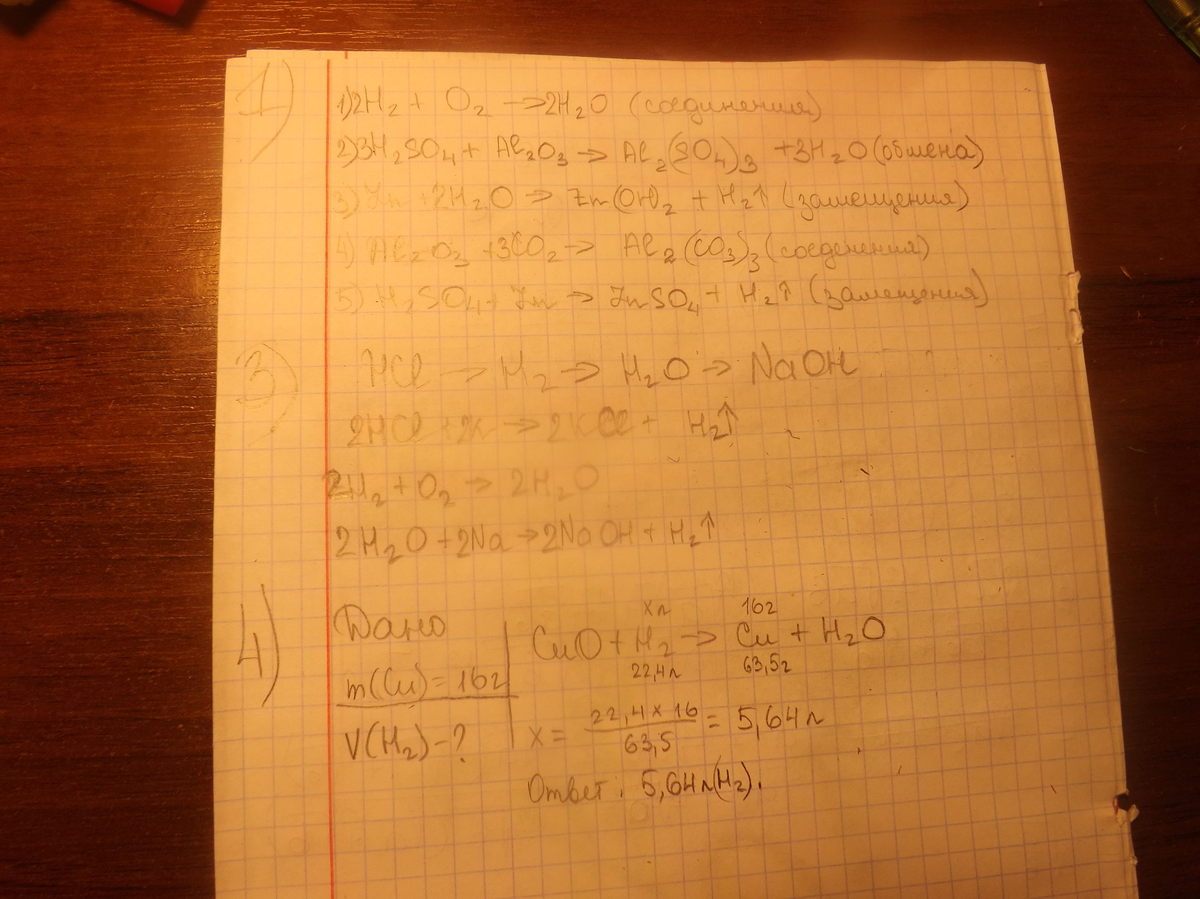 1)
1) 2H₂ + O₂ → 2H₂O (соединения)
2) 3H₂SO₄ + Al₂O₃ → Al₂(SO₄)₃ + 3H₂O (обмена)
3) Zn + 2H₂O → Zn(OH)₂ + H₂↑ (замещения)
4) Al₂O₃ + 3CO₂ → Al₂(CO₃)₃ (соеденения)
5) H₂SO₄ + Zn → ZnSO₄ + H₂↑ (замещения)
3)
HCl → H₂ → H₂O → NaOH
2HCl + 2K → 2KCl + H₂↑
2H₂ + O₂ → 2H₂O
2H₂O + 2Na → 2NaOH + H₂↑
4)
Дано
m(Cu) = 16г
V(H₂) - ?
xл 16г
CuO + H₂ → Cu + H₂O
22,4л 63,5г
x = 22,4 × 16 / 63,5 = 5,64л
Ответ: 5,64л(H₂).